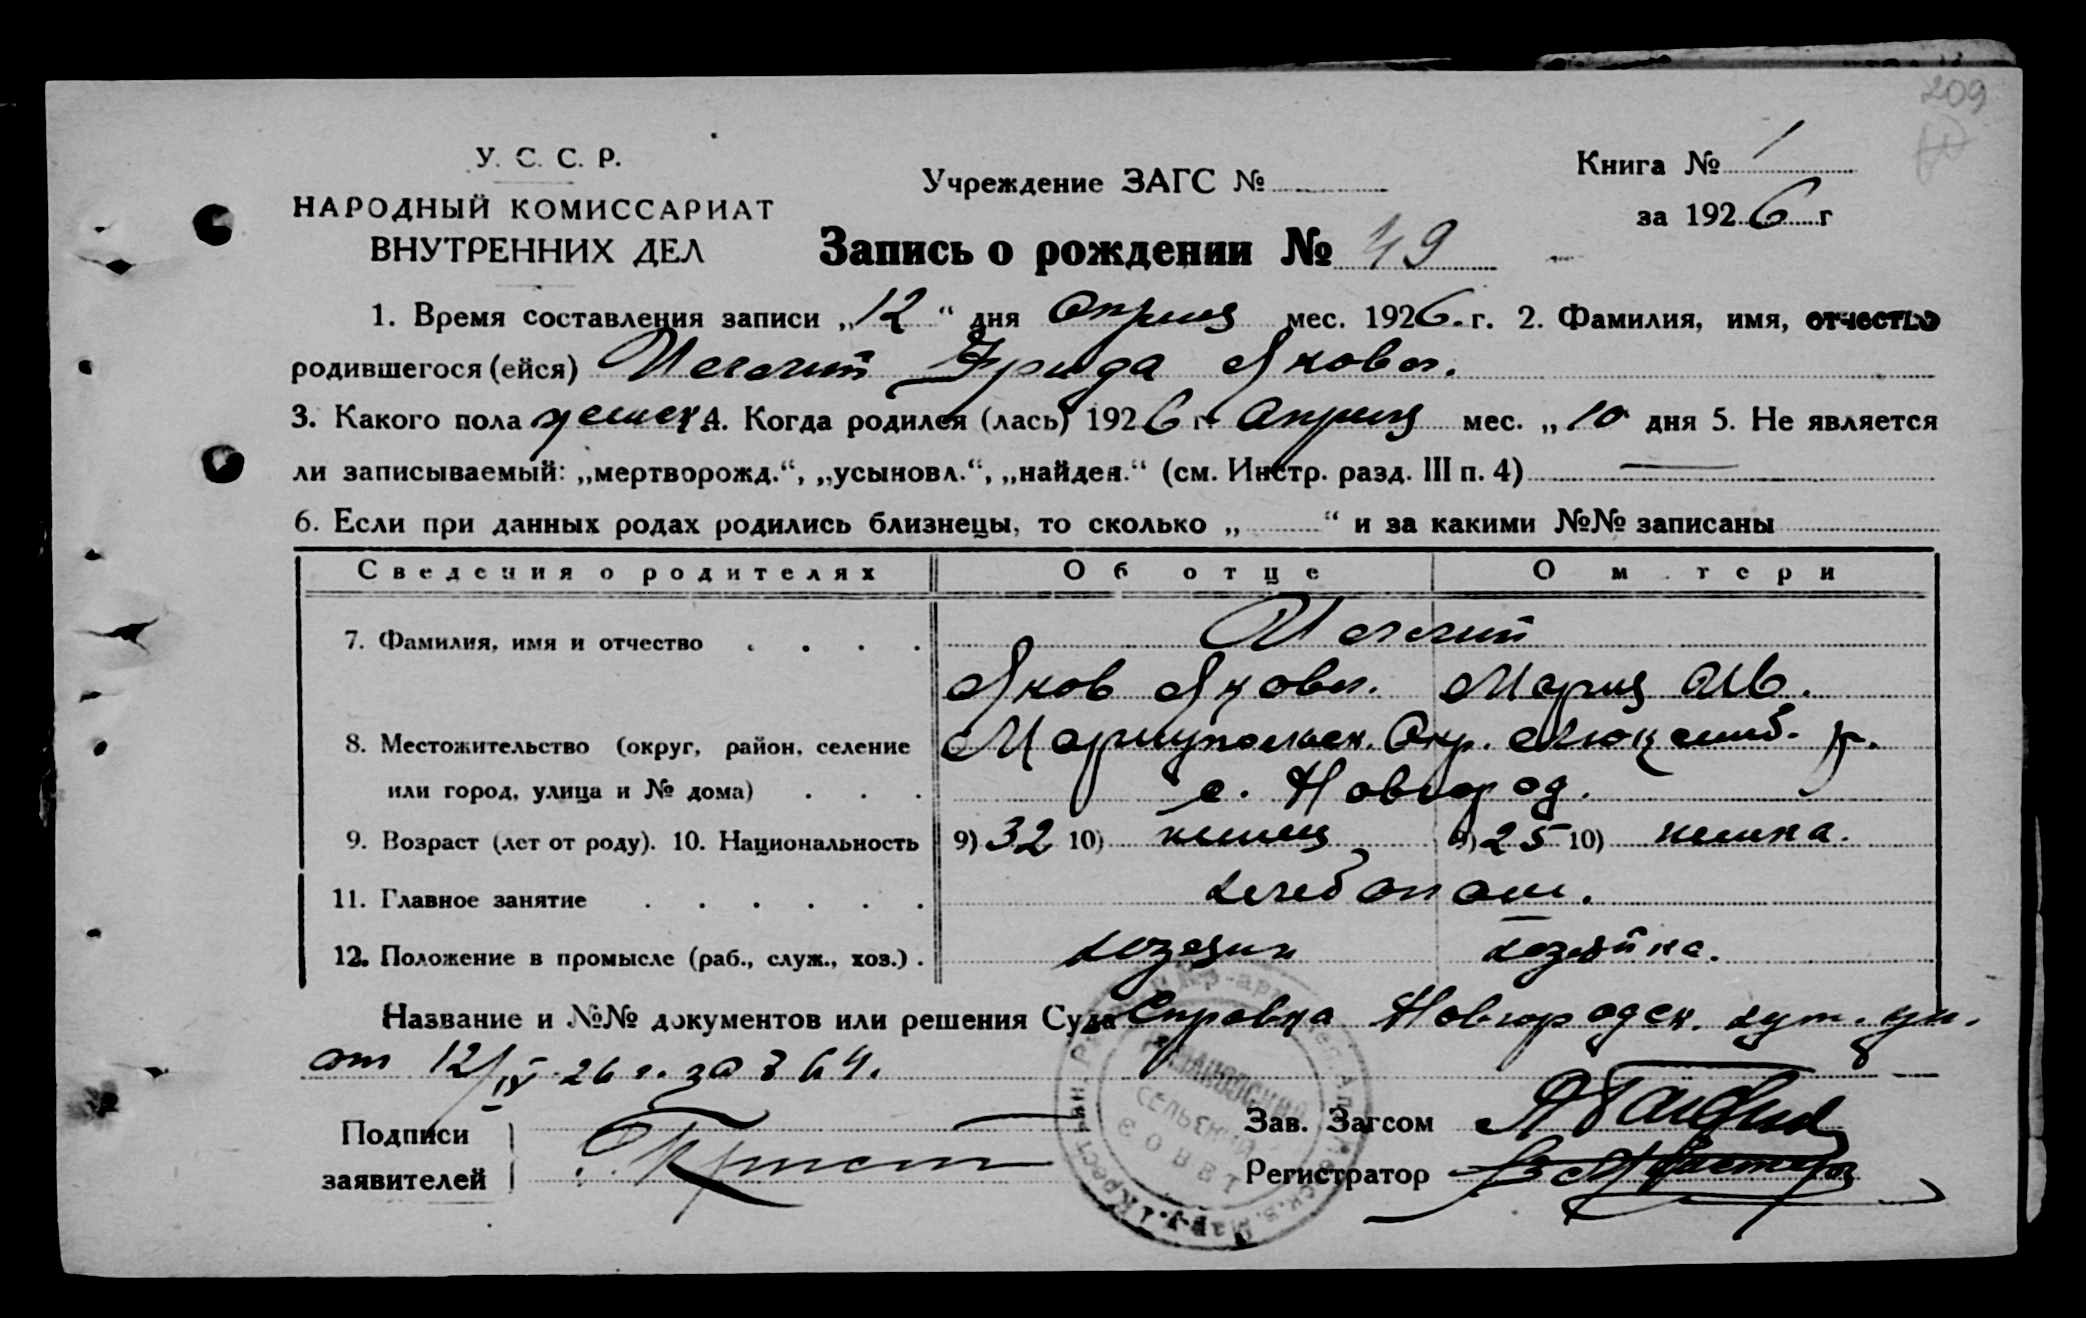 209
У. С. С. Р.
НАРОДНЫЙ КОМИССАРИАТ
ВНУТРЕННИХ ДЕЛ
Учреждение ЗАГС №
Книга № 1
за 1926 г
Запись о рождении № 49
1. Время составления записи „12“ дня Апреля мес. 1926. г. 2. Фамилия, имя, отчество
родившегося (ейся) Фрида Яковл.
3. Какого пола женск. 4. Когда родился (лась) 1926 г. Апреля мес. „10 дня 5. Не является
ли записываемый: „мертворожд.“, „усыновл.“, „найден.“ (см. Инстр. разд. III п. 4)
6. Если при данных родах родились близнецы, то сколько „ “ и за какими №№ записаны
Сведения о родителях Об отце О м тери
7. Фамилия, имя и отчество
Яков Яковл. Мария Ив.
8. Местожительство (округ, район, селение Мариупольск. Окр. Люксемб. р.
или город, улица и № дома) с. Новгород.
9. Возраст (лет от роду). 10. Национальность 9) 32 10) немец 9) 25 10) немка.
11. Главное занятие хлебопаш.
12. Положение в промысле (раб., служ., хоз.) хозяин хозяйка.
Название и №№ документов или решения Суда Справка Новгородск. хут. уп.
от 12/IV-26 г. за № 64.
Подписи
заявителей
Зав. Загсом
Регистратор
СЕЛЬСКИЙ